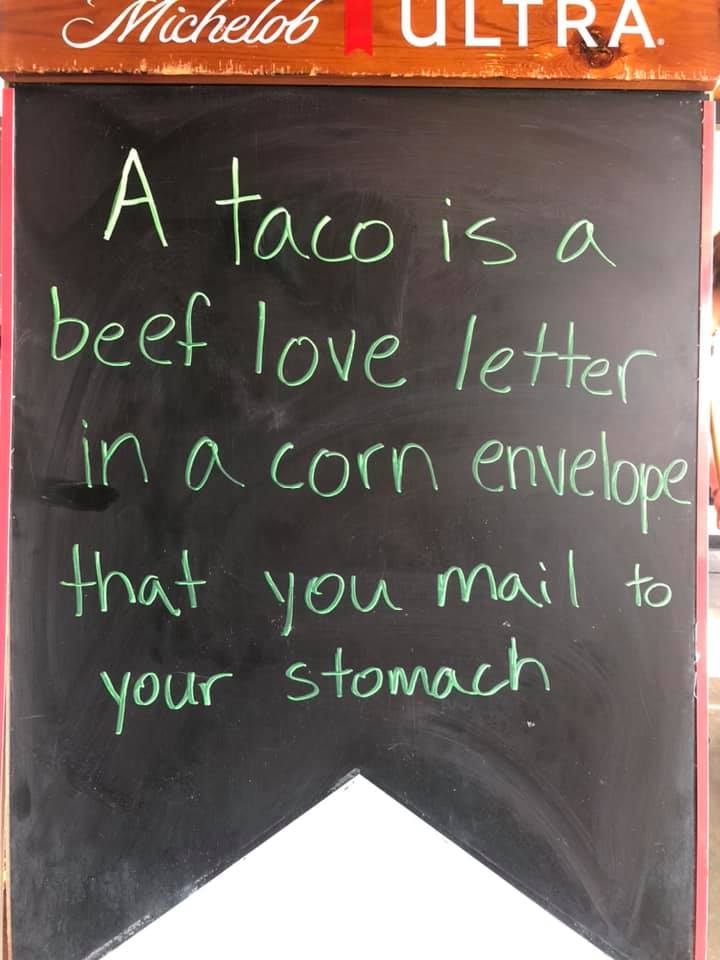 Michelob ULTRA
A taco is a
beef love letter
in a corn envelope
that you mail to
your stomach